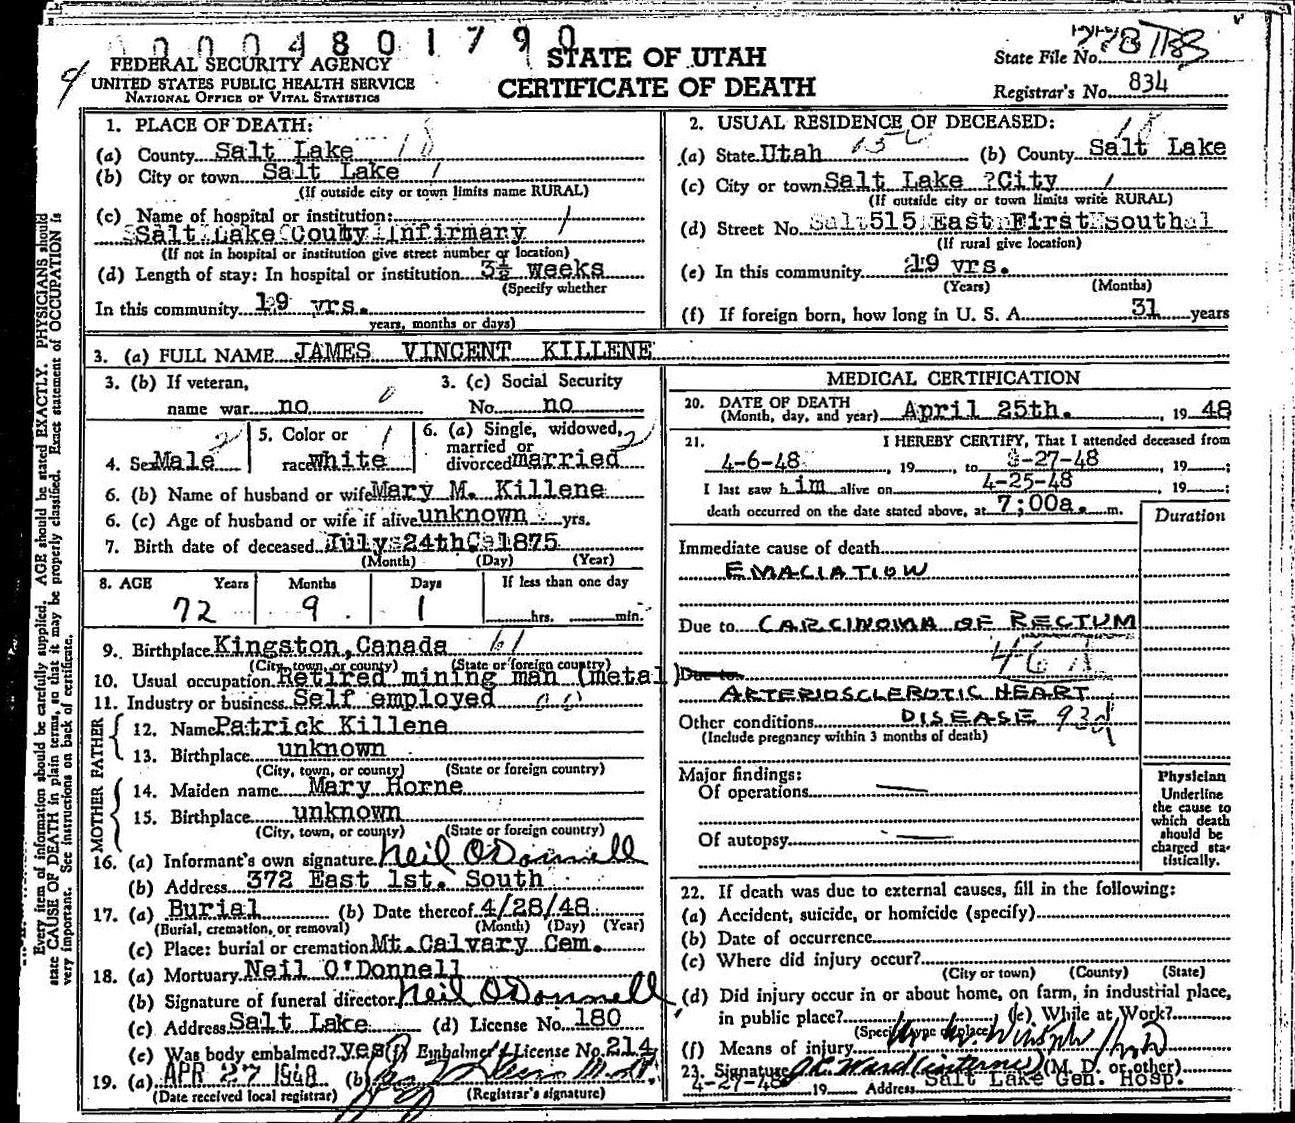 0004801790
FEDERAL SECURITY AGENCY
UNITED STATES PUBLIC HEALTH SERVICE
NATIONAL OFFICE OF VITAL STATISTICS
STATE OF UTAH
CERTIFICATE OF DEATH
State File No.
Registrar's No. 834
Every item of information should be carefully supplied. AGE should be stated EXACTLY. PHYSICIANS should
state CAUSE OF DEATH in plain terms, so that it may be properly classified. Exact statement of OCCUPATION is
very important. See instructions on back of certificate.
1. PLACE OF DEATH:
(a) County Salt Lake 18
(b) City or town Salt Lake 1
(If outside city or town limits name RURAL)
(c) Name of hospital or institution: 1
Salt Lake County Infirmary
(If not in hospital or institution give street number or location)
(d) Length of stay: In hospital or institution 3½ weeks
(Specify whether
In this community 19 yrs.
years, months or days)
2. USUAL RESIDENCE OF DECEASED:
(a) State Utah (b) County Salt Lake 18
(c) City or town Salt Lake ?City 1
(If outside city or town limits write RURAL)
(d) Street No. 515 East First South
(If rural give location)
(e) In this community 19 yrs.
(Years) (Months)
(f) If foreign born, how long in U. S. A. 31 years
3. (a) FULL NAME JAMES VINCENT KILLENE
3. (b) If veteran, 3. (c) Social Security
name war no 0 No. no
4. Sex Male 2
5. Color or 1
race white
6. (a) Single, widowed, 2
married or
divorced married
6. (b) Name of husband or wife Mary M. Killene
6. (c) Age of husband or wife if alive unknown yrs.
7. Birth date of deceased July 24th 1875
(Month) (Day) (Year)
8. AGE Years Months Days If less than one day
72 9 1 hrs. min.
9. Birthplace Kingston, Canada 61
(City, town, or county) (State or foreign country)
10. Usual occupation Retired mining man (metal)
11. Industry or business Self employed
FATHER
12. Name Patrick Killene
13. Birthplace unknown
(City, town, or county) (State or foreign country)
MOTHER
14. Maiden name Mary Horne
15. Birthplace unknown
(City, town, or county) (State or foreign country)
16. (a) Informant's own signature Neil O'Donnell
(b) Address 372 East 1st. South
17. (a) Burial (b) Date thereof 4/28/48
(Burial, cremation, or removal) (Month) (Day) (Year)
(c) Place: burial or cremation Mt. Calvary Cem.
18. (a) Mortuary Neil O'Donnell
(b) Signature of funeral director Neil O'Donnell
(c) Address Salt Lake (d) License No. 180
(e) Was body embalmed? yes (f) Embalmer's License No. 214
19. (a) APR 27 1948 (b)
(Date received local registrar) (Registrar's signature)
MEDICAL CERTIFICATION
20. DATE OF DEATH
(Month, day, and year) April 25th. , 19 48
21. I HEREBY CERTIFY, That I attended deceased from
4-6-48 , 19 , to -27-48 , 19 ;
I last saw h im alive on 4-25-48 , 19 ;
death occurred on the date stated above, at 7;00a. m.
Duration
Immediate cause of death
EMACIATION
Due to CARCINOMA OF RECTUM
Due to
ARTERIOSCLEROTIC HEART
Other conditions DISEASE 93d
(Include pregnancy within 3 months of death)
Major findings:
Of operations —
Of autopsy —
Physician
Underline
the cause to
which death
should be
charged sta-
tistically.
22. If death was due to external causes, fill in the following:
(a) Accident, suicide, or homicide (specify)
(b) Date of occurrence
(c) Where did injury occur?
(City or town) (County) (State)
(d) Did injury occur in or about home, on farm, in industrial place,
in public place? (e) While at Work?
(Specify type of place)
(f) Means of injury
23. Signature (M. D. or other)
4-27-48 19 Address Salt Lake Gen. Hosp.